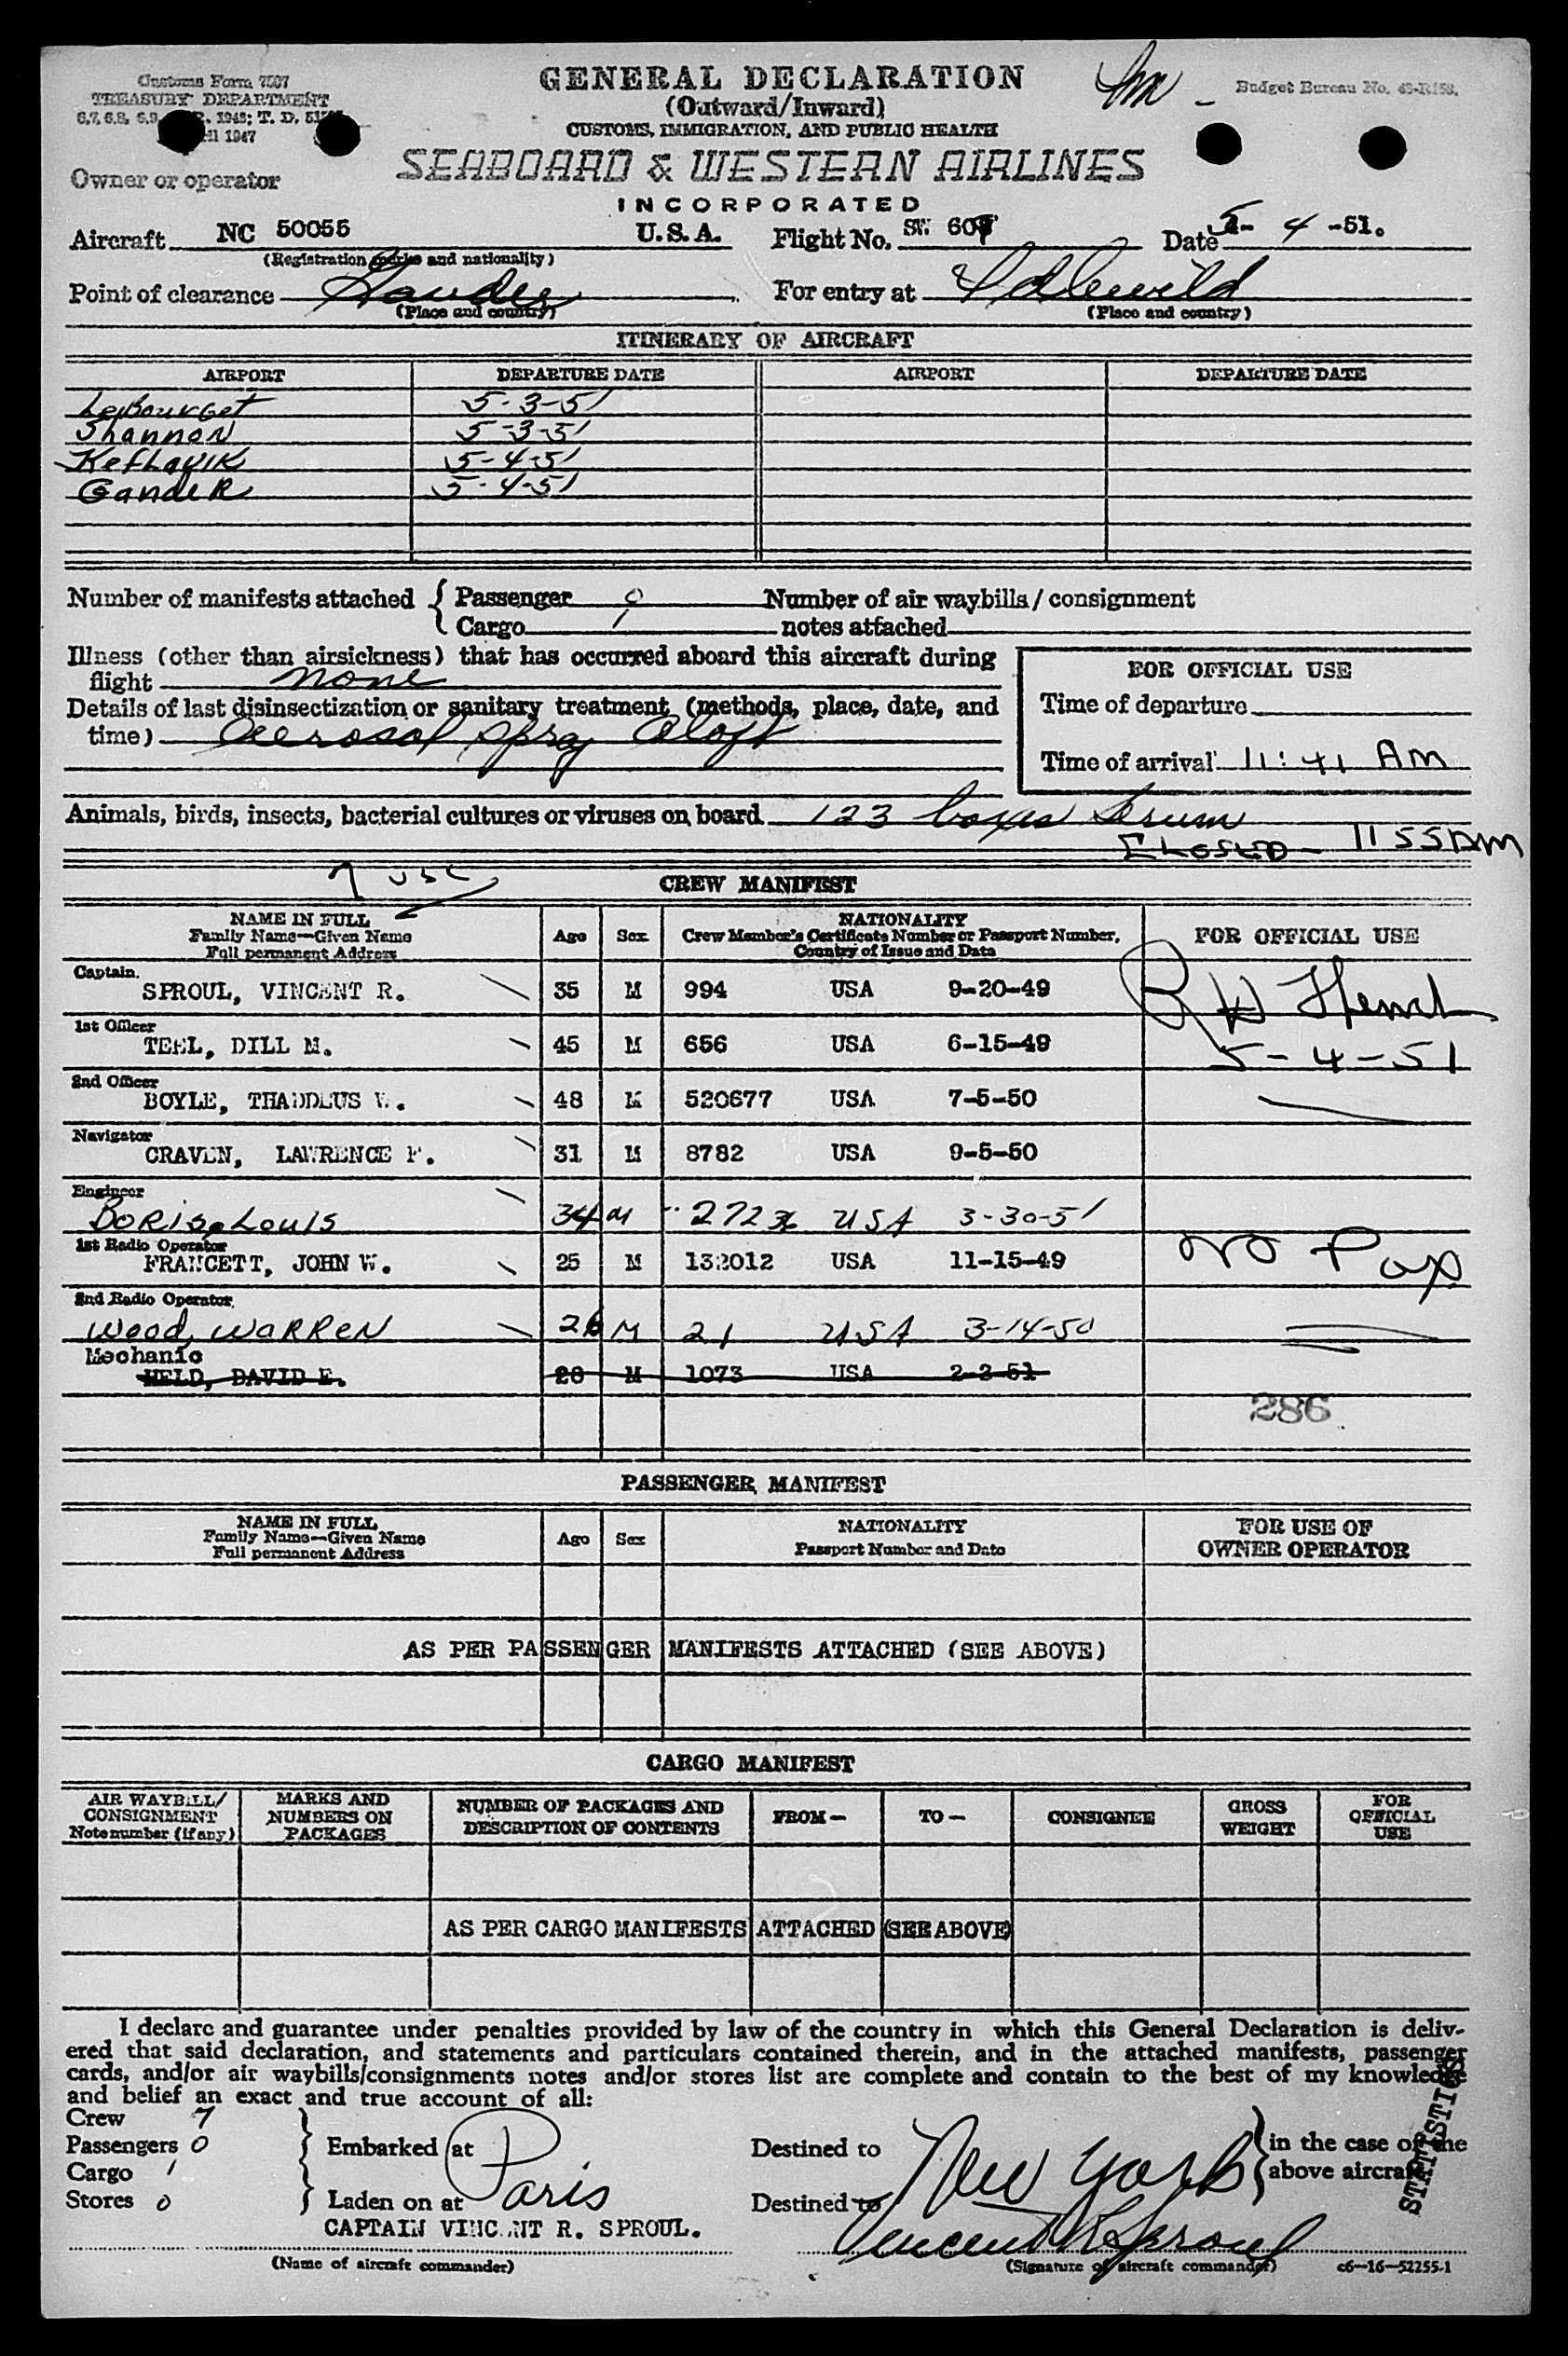 Customs Form 7507
TREASURY DEPARTMENT
1947
GENERAL DECLARATION
(Outward/Inward)
CUSTOMS, IMMIGRATION, AND PUBLIC HEALTH
Budget Bureau No.
Owner or operator
SEABOARD & WESTERN AIRLINES
INCORPORATED
Aircraft NC 50055 U.S.A. Flight No. SW Date 5- 4 -51.
(Registration marks and nationality)
Point of clearance Gander For entry at Idlewild
(Place and country) (Place and country)
ITINERARY OF AIRCRAFT
AIRPORT DEPARTURE DATE AIRPORT DEPARTURE DATE
LeBourget 5-3-51
Shannon 5-3-51
Keflavik 5-4-51
Gander 5-4-51
Number of manifests attached { Passenger 0 Number of air waybills/consignment
Cargo 1 notes attached
Illness (other than airsickness) that has occurred aboard this aircraft during
flight none
FOR OFFICIAL USE
Details of last disinsectization or sanitary treatment (methods, place, date, and
time) Aerosol spray Aloft
Time of departure
Time of arrival 11:41 AM
Animals, birds, insects, bacterial cultures or viruses on board 123 boxes serum
CLOSED - 1155AM
7 USC
CREW MANIFEST
NAME IN FULL
Family Name—Given Name
Full permanent Address
Age Sex
NATIONALITY
Crew Member's Certificate Number or Passport Number,
Country of Issue and Date
FOR OFFICIAL USE
Captain.
SPROUL, VINCENT R. 35 M 994 USA 9-20-49
1st Officer
TEEL, DILL M. 45 M 656 USA 6-15-49 5-4-51
2nd Officer
BOYLE, THADDEUS W. 48 M 520677 USA 7-5-50
Navigator
CRAVEN, LAWRENCE F. 31 M 8782 USA 9-5-50
Engineer
Boris, Louis 34 M USA 3-30-51
1st Radio Operator
FRANCETT, JOHN W. 25 M 132012 USA 11-15-49 NO Pax
2nd Radio Operator
Wood, WARREN 26 M 21 USA 3-14-50
Mechanic
HELD, DAVID E. 28 M 1073 USA 2-2-51
286
PASSENGER MANIFEST
NAME IN FULL
Family Name—Given Name
Full permanent Address
Age Sex
NATIONALITY
Passport Number and Date
FOR USE OF
OWNER OPERATOR
AS PER PASSENGER MANIFESTS ATTACHED (SEE ABOVE)
CARGO MANIFEST
AIR WAYBILL/
CONSIGNMENT
Note number (if any)
MARKS AND
NUMBERS ON
PACKAGES
NUMBER OF PACKAGES AND
DESCRIPTION OF CONTENTS
FROM— TO— CONSIGNEE
GROSS
WEIGHT
FOR
OFFICIAL
USE
AS PER CARGO MANIFESTS ATTACHED (SEE ABOVE)
I declare and guarantee under penalties provided by law of the country in which this General Declaration is deliv-
ered that said declaration, and statements and particulars contained therein, and in the attached manifests, passenger
cards, and/or air waybills/consignments notes and/or stores list are complete and contain to the best of my knowledge
and belief an exact and true account of all:
Crew 7
Passengers 0
Cargo 1
Stores 0
Embarked at
Laden on at
Paris
Destined to
Destined to
New York
in the case of the
above aircraft
STATISTICS
CAPTAIN VINCENT R. SPROUL.
Vincent R Sproul
(Name of aircraft commander) (Signature of aircraft commander) c6—16—52255-1